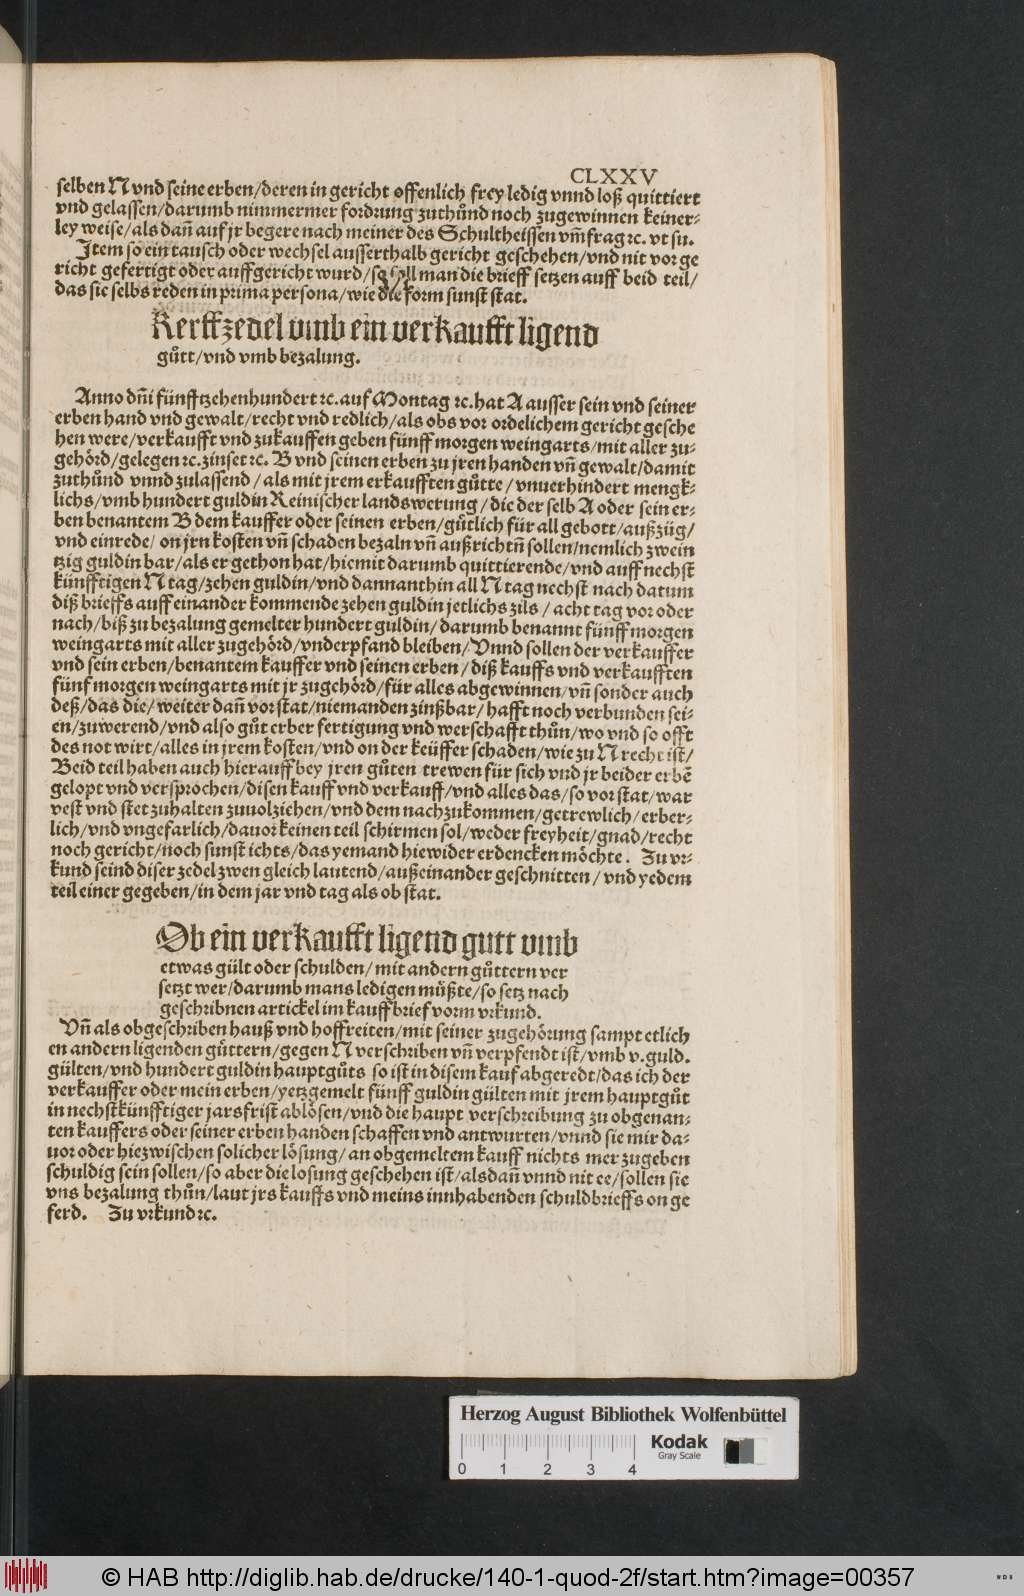 CLXXV
selben N vnd seine erben/deren in gericht offenlich frey ledig vnnd loß quittiert
vnd gelassen/darumb nimmermer fordrung zuthůnd noch zugewinnen keiner⸗
ley weise/als dañ auf jr begere nach meiner des Schultheissen vm̃frag ꝛc. vt su.
Jtem so ein tausch oder wechsel ausserthalb gericht geschehen/vnd nit vor ge
richt gefertigt oder auffgericht wurd/so soll man die brieff setzen auff beid teil/
das sie selbs reden in prima persona/wie die form sunst stat.
Kerffzedel vmb ein verkaufft ligend
gůtt/vnd vmb bezalung.
Anno dñi fünfftzehenhundert ꝛc. auf Montag ꝛc. hat A ausser sein vnd seiner
erben hand vnd gewalt/recht vnd redlich/als obs vor ordelichem gericht gesche
hen were/verkaufft vnd zukauffen geben fünff morgen weingarts/mit aller zu⸗
gehörd/gelegen ꝛc. zinset ꝛc. B vnd seinen erben zu jren handen vñ gewalt/damit
zuthůnd vnnd zulassend/als mit jrem erkaufften gůtte/vnuerhindert mengk⸗
lichs/vmb hundert guldin Reinischer landswerung/die der selb A oder sein er⸗
ben benantem B dem kauffer oder seinen erben/gůtlich für all gebott/außzüg/
vnd einrede/on jrn kosten vñ schaden bezaln vñ außrichtñ sollen/nemlich zwein
tzig guldin bar/als er gethon hat/hiemit darumb quittierende/vnd auff nechst
künfftigen N tag/zehen guldin/vnd dannanthin all N tag nechst nach datum
diß brieffs auff einander kommende zehen guldin jetlichs zils/acht tag vor oder
nach/biß zu bezalung gemelter hundert guldin/darumb benannt fünff morgen
weingarts mit aller zugehörd/vnderpfand bleiben/Vnnd sollen der verkauffer
vnd sein erben/benantem kauffer vnd seinen erben/diß kauffs vnd verkaufften
fünf morgen weingarts mit jr zugehörd/für alles abgewinnen/vñ sonder auch
deß/das die/weiter dañ vor stat/niemanden zinßbar/hafft noch verbunden sei⸗
en/zuwerend/vnd also gůt erber fertigung vnd werschafft thůn/wo vnd so offt
des not wirt/alles in jrem kosten/vnd on der keüffer schaden/wie zu N recht ist/
Beid teil haben auch hierauff bey jren gůten trewen für sich vnd jr beider erbē
gelopt vnd versprochen/disen kauff vnd verkauff/vnd alles das/so vor stat/war
vest vnd stet zuhalten zuuolziehen/vnd dem nachzukommen/getrewlich/erber⸗
lich/vnd vngefarlich/dauor keinen teil schirmen sol/weder freyheit/gnad/recht
noch gericht/noch sunst ichts/das yemand hiewider erdencken möchte. Zu vr⸗
kund seind diser zedel zwen gleich lautend/außeinander geschnitten/vnd yedem
teil einer gegeben/in dem jar vnd tag als ob stat.
Ob ein verkaufft ligend gutt vmb
etwas gült oder schulden/mit andern gůttern ver
setzt wer/darumb mans ledigen můßte/so setz nach
geschribnen artickel im kauffbrief vorm vrkund.
Vñ als obgeschriben hauß vnd hoffreiten/mit seiner zugehörung sampt etlich
en andern ligenden gůttern/gegen N verschriben vñ verpfendt ist/vmb v. guld.
gülten/vnd hundert guldin hauptgůts so ist in disem kauf abgeredt/das ich der
verkauffer oder mein erben/yetzgemelt fünff guldin gülten mit jrem hauptgůt
in nechstkünfftiger jarsfrist ablösen/vnd die haupt verschreibung zu obgenan⸗
ten kauffers oder seiner erben handen schaffen vnd antwurten/vnnd sie mir da⸗
uor oder hiezwischen solicher lösung/an obgemeltem kauff nichts mer zugeben
schuldig sein sollen/so aber die losung geschehen ist/alsdañ vnnd nit ee/sollen sie
vns bezalung thůn/laut jrs kauffs vnd meins innhabenden schuldbrieffs on ge
ferd. Zu vrkund ꝛc.
Herzog August Bibliothek Wolfenbüttel
Kodak
Gray Scale
0 1 2 3 4
© HAB http://diglib.hab.de/drucke/140-1-quod-2f/start.htm?image=00357